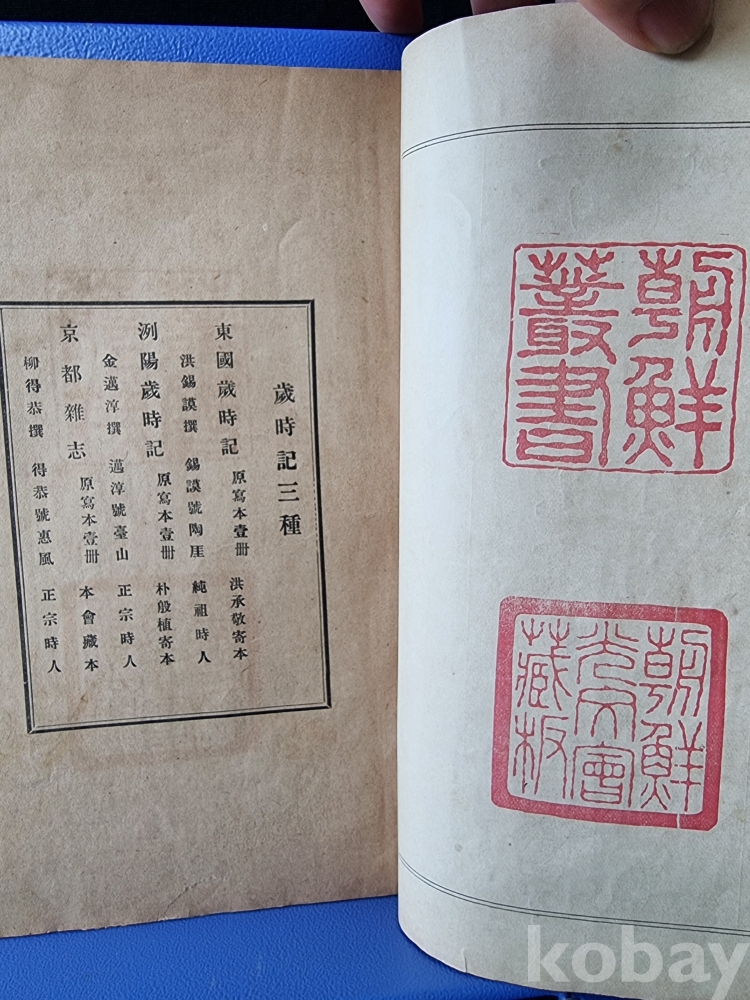 朝鮮
叢書
朝鮮
光文會
藏板
歲時記三種
東國歲時記 原寫本壹冊 洪承敬寄本
洪錫謨撰 錫謨號陶厓 純祖時人
洌陽歲時記 原寫本壹冊 朴殷植寄本
金邁淳撰 邁淳號臺山 正宗時人
京都雜志 原寫本壹冊 本會藏本
柳得恭撰 得恭號惠風 正宗時人
kobay